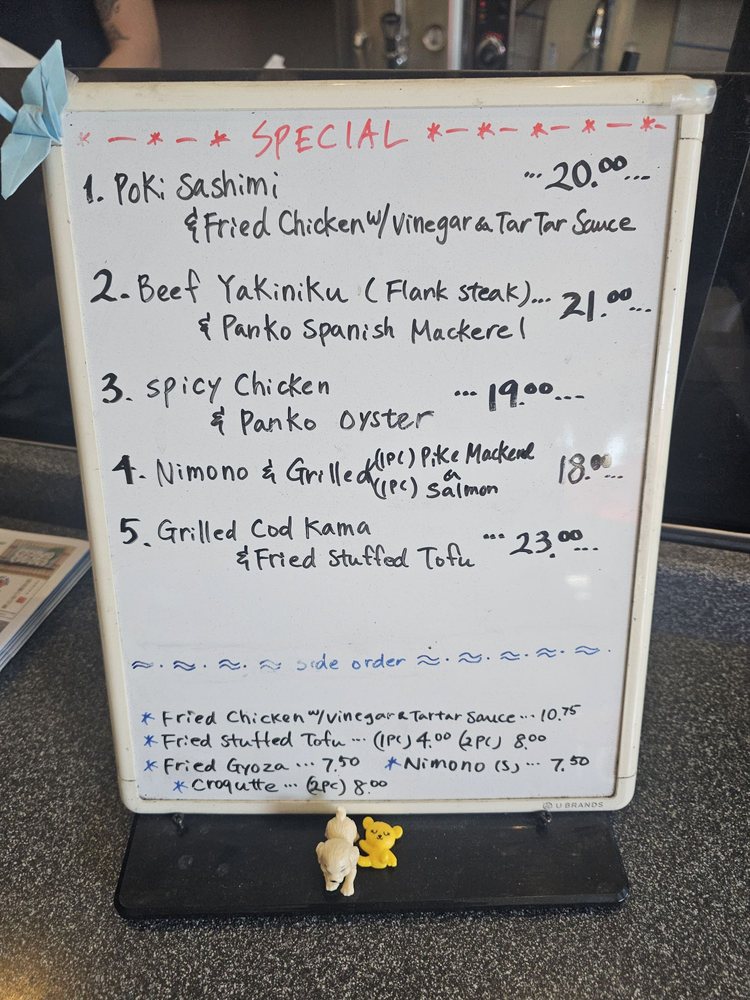 * - * - * SPECIAL * - * - * - * - * -
1. Poki Sashimi ... 20.00 ...
& Fried Chicken w/ Vinegar & TarTar Sauce
2. Beef Yakiniku (Flank steak)... 21.00 ...
& Panko Spanish Mackerel
3. Spicy Chicken ... 19.00 ...
& Panko Oyster
4. Nimono & Grilled (1PC) Pike Mackerel 18.00 ...
or
(1PC) Salmon
5. Grilled Cod Kama ... 23.00 ...
& Fried Stuffed Tofu
≈ · ≈ · ≈ · ≈ side order ≈ · ≈ · ≈ · ≈ · ≈ ·
* Fried Chicken w/ Vinegar & Tartar Sauce ... 10.75
* Fried Stuffed Tofu ... (1PC) 4.00 (2PC) 8.00
* Fried Gyoza ... 7.50 * Nimono (S) ... 7.50
* Croqutte ... (2PC) 8.00
U BRANDS